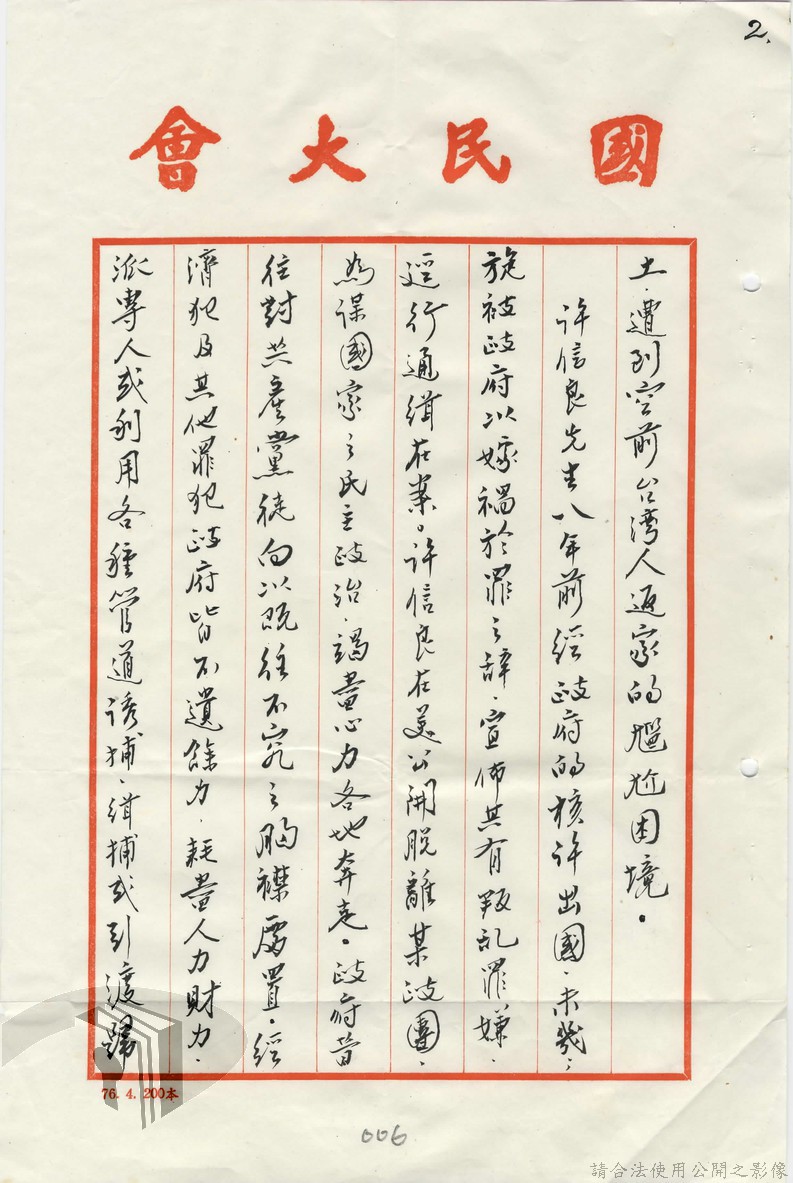 2.
國民大會
土，遭到空前台湾人返家的尷尬困境。
許信良先生八年前經政府的核許出國，未幾，
旋被政府以嫁禍於罪之辭，宣佈其有叛乱罪嫌，
逕行通缉在案。許信良在美公開脱離某政團，
為謀國家之民主政治，竭盡心力各地奔走。政府昔
往對共產黨徒向以既往不究之胸襟處置，經
濟犯及其他罪犯政府皆不遺餘力，耗盡人力財力，
派專人或利用各種管道誘捕，缉捕或引渡歸
76. 4. 200本
006
請合法使用公開之影像